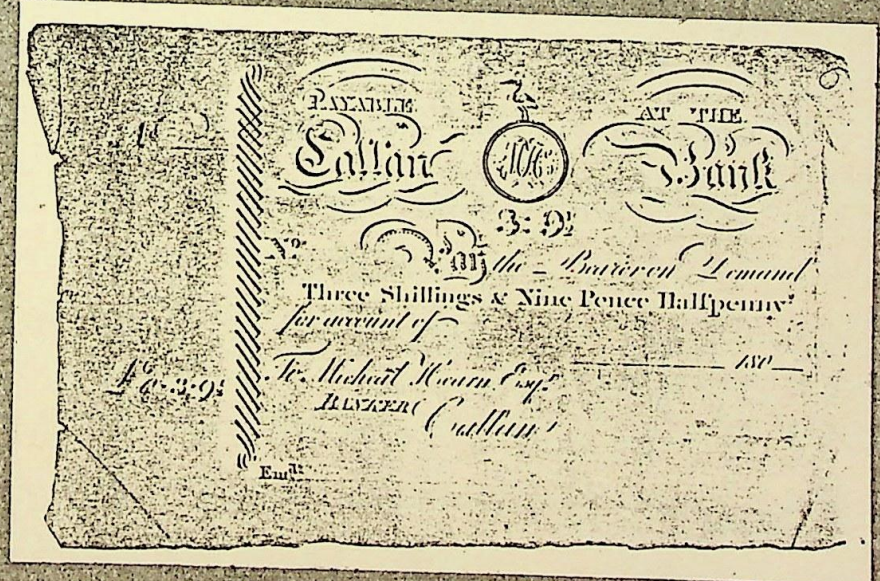 PAYABLE AT THE
Callan Bank
3: 9½
No.
Pay the Bearer on Demand
Three Shillings & Nine Pence Halfpenny
for account of
180
£0-3:9½ To Micheal Hearn Esqr.
BANKER Callan
Entd.